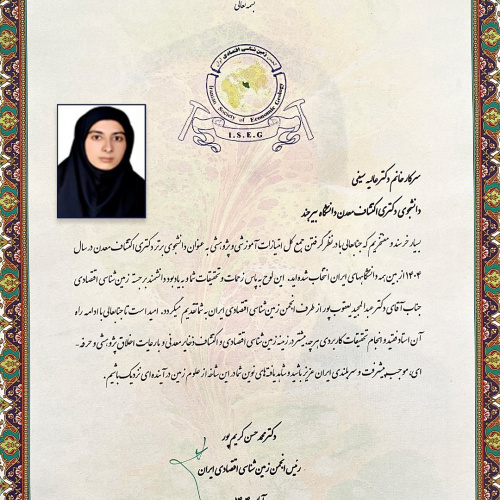 بسمه تعالی
انجمن زمین شناسی اقتصادی ایران
Iranian Society of Economic Geology
I.S.E.G
سرکار خانم دکتر عالیه سیفی
دانشجوی دکتری اکتشاف معدن دانشگاه بیرجند
بسیار خرسند و مفتخریم که جنابعالی با در نظر گرفتن جمع کل امتیازات آموزشی و پژوهشی به عنوان دانشجوی برتر دکتری اکتشاف معدن در سال
۱۴۰۴ از بین همه دانشگاههای ایران انتخاب شده‌اید. این لوح به پاس زحمات و تحقیقات شما و به یادبود دانشمند برجسته زمین شناسی اقتصادی
جناب آقای دکتر عبدالمجید یعقوب پور از طرف انجمن زمین شناسی اقتصادی ایران به شما تقدیم میگردد. امید است تا جنابعالی با ادامه راه
آن استاد فقید و انجام تحقیقات کاربردی هر چه بیشتر در زمینه زمین شناسی اقتصادی و اکتشاف ذخایر معدنی و با رعایت اخلاق پژوهشی و حرفه-
ای، موجب پیشرفت و سربلندی ایران عزیز باشید و شاهد یافته‌های نوین شما در این شاخه از علوم زمین در آینده‌ای نزدیک باشیم.
دکتر محمد حسن کریم پور
رئیس انجمن زمین شناسی اقتصادی ایران